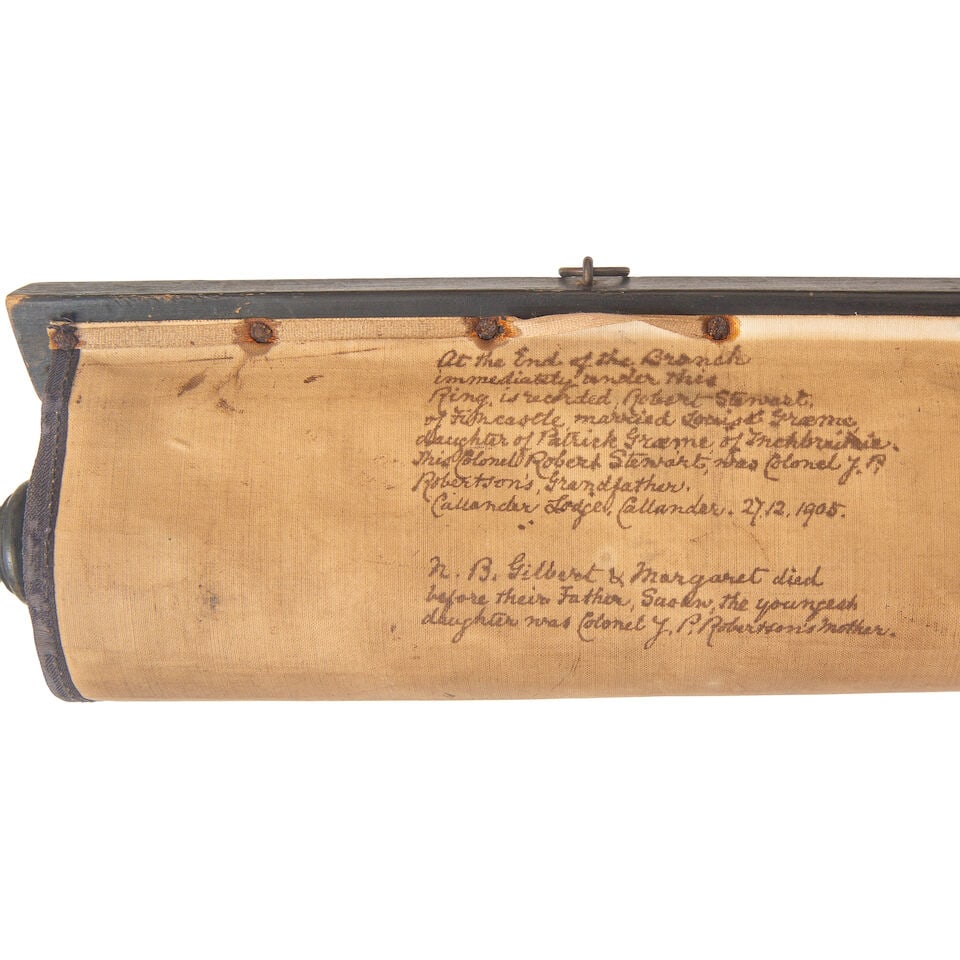 At the End of the Branch
immediately under this
Ring, is recorded, Robert Stewart,
of Fincastle, married Louisa Græme,
daughter of Patrick Græme of Inchbrakie.
This Colonel Robert Stewart, was Colonel J. P.
Robertson's, Grandfather.
Callander Lodge, Callander. 27.12.1905.
N. B. Gilbert & Margaret died
before their Father, Susan, the youngest
daughter was Colonel J. P. Robertson's mother.